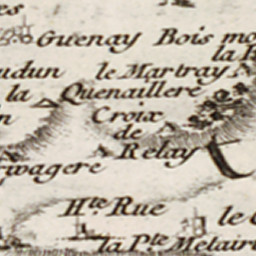 es
Guenay Bois mo
la
udun le Martray
la Quenailleré
n Croix
de
Relay
wagere
H.te Rue
le
la P.te Metair